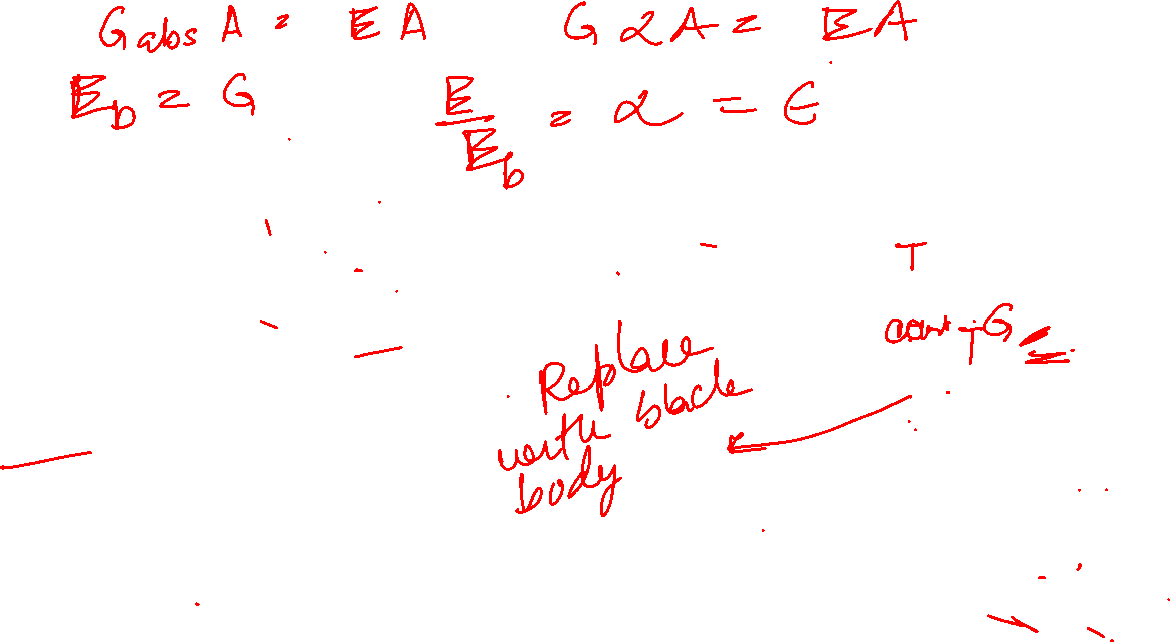 G abs A = E A G α A = E A
E b = G E / E b = α = ϵ
T
G
Replace
with black
body